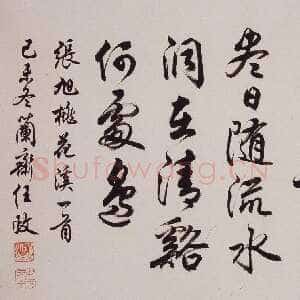 尽日随流水
洞在清谿
何處邊
張旭桃花溪一首
己未冬蘭齋任政
Shufawang.CN